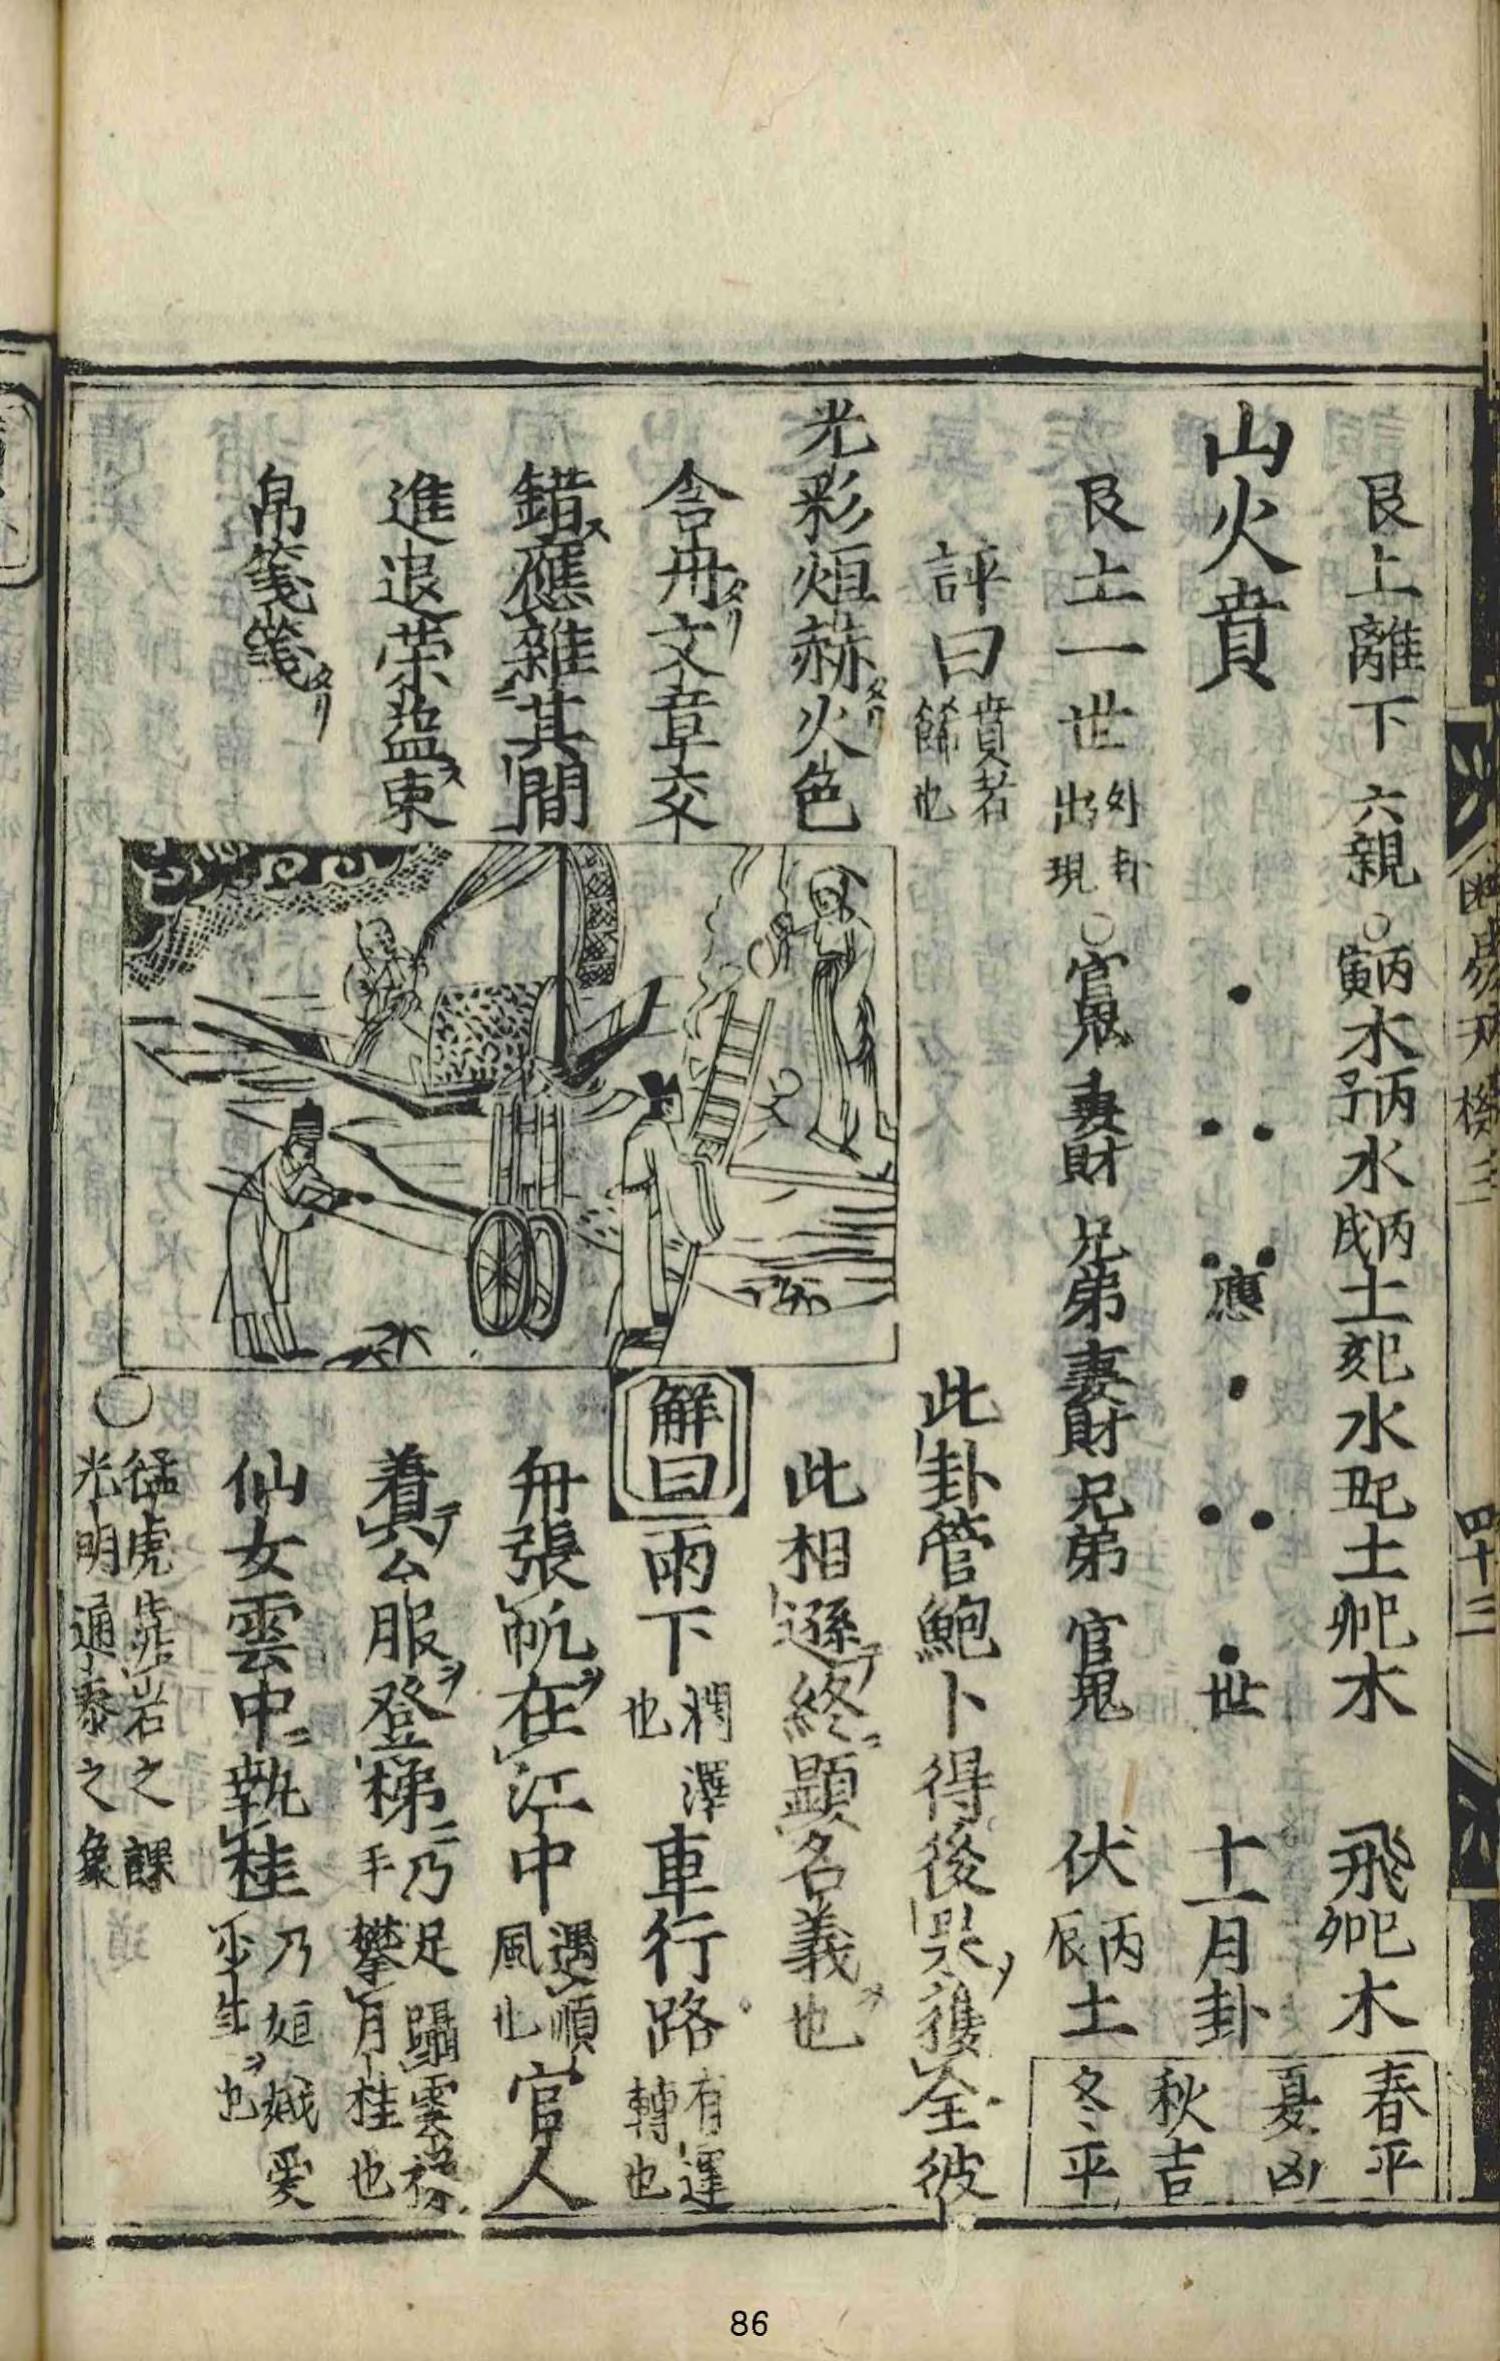 艮上離下 六親 ○丙寅木 丙子水 丙戌土 己亥水 己丑土 己卯木 飛己卯木
山火賁 應 世 十一月卦
艮土一世 外卦出現 ○官鬼 妻財 兄弟 妻財 兄弟 官鬼 伏丙辰土
春平
夏凶
秋吉
冬平
評曰 賁者餙也 此卦管鮑卜得後果獲全彼
此相遜終顯名義也
光彩烜赫火色
含丹文章交
錯應雜其間
進退荣益束
帛箋箋
解曰 雨下 潤澤也 車行路 有運轉也
舟張帆在江中 遇順風也 官人
着公服登梯 乃足躡雲 手攀月桂也
仙女雲中執桂 乃姮娥愛少年也
○猛虎靠岩之課
光明通泰之象
四十三
86